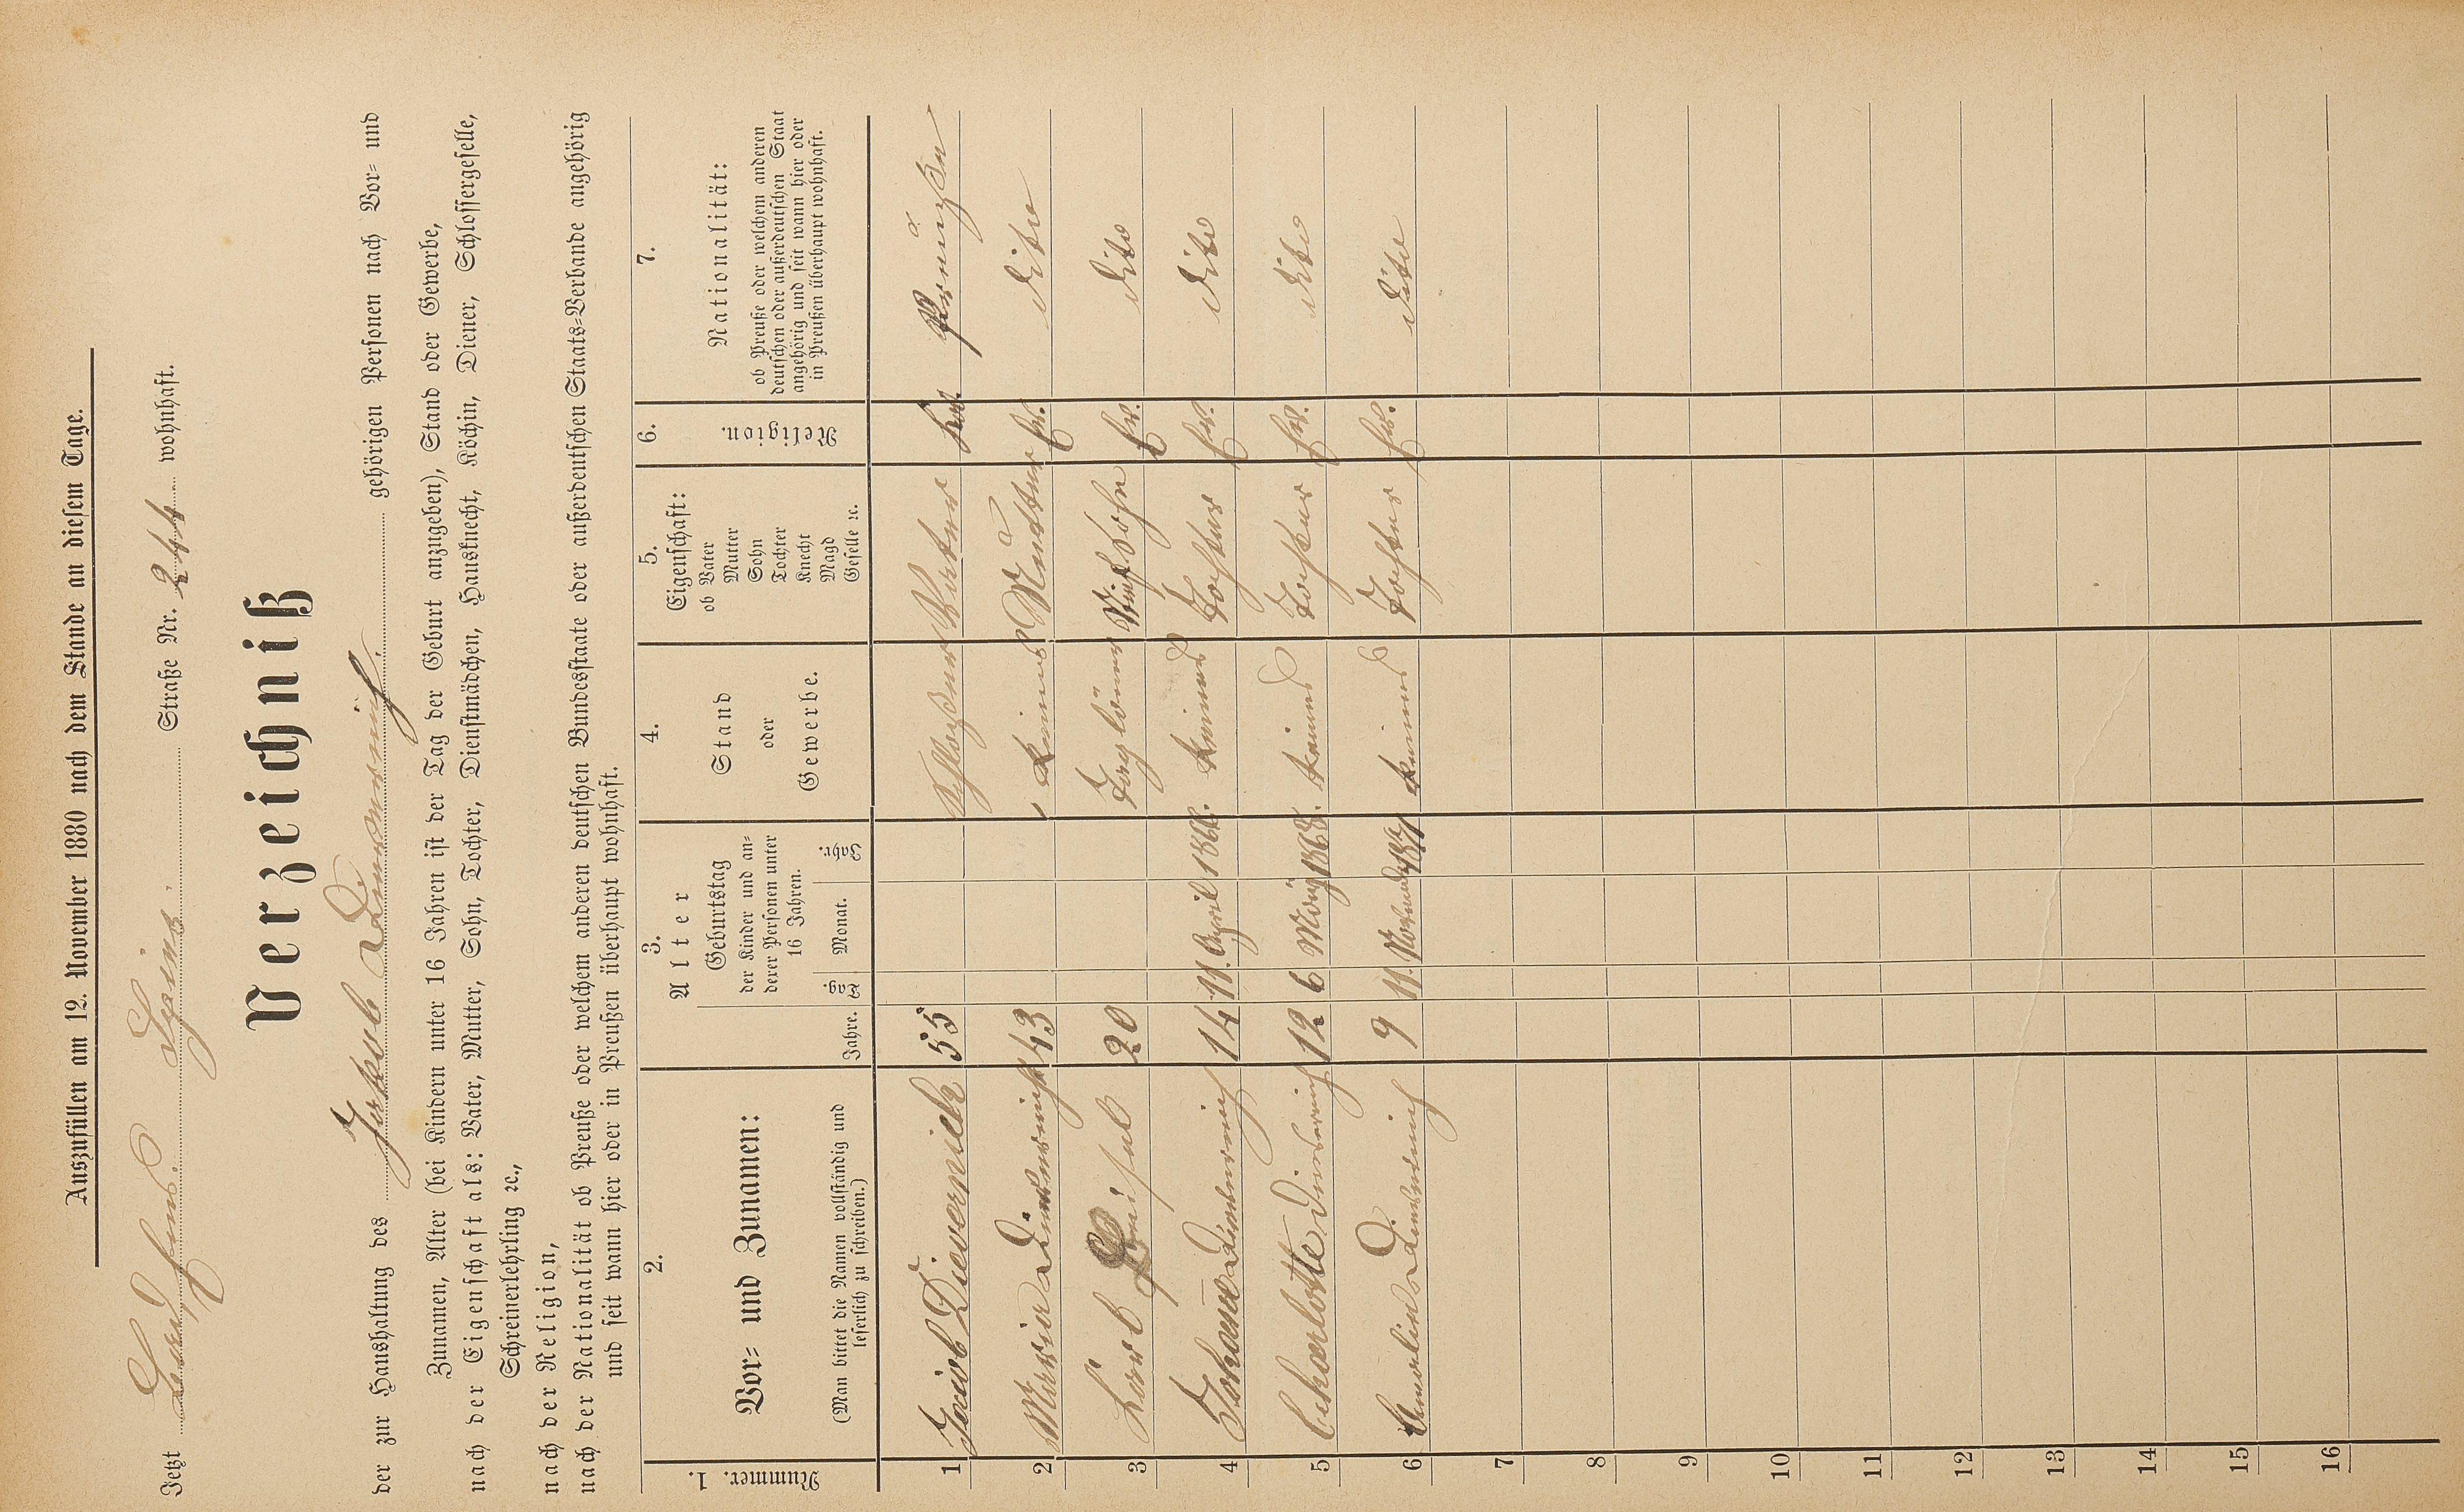 Auszufüllen am 12. November 1880 nach dem Stande an diesem Tage.
Jetzt Straße Nr. 244 wohnhaft.
Verzeichniß
der zur Haushaltung des Jakob Dievernich. gehörigen Personen nach Vor- und
Zunamen, Alter (bei Kindern unter 16 Jahren ist der Tag der Geburt anzugeben), Stand oder Gewerbe,
nach der Eigenschaft als: Vater, Mutter, Sohn, Tochter, Dienstmädchen, Hausknecht, Köchin, Diener, Schlossergeselle,
Schreinerlehrling ꝛc.,
nach der Religion,
nach der Nationalität ob Preuße oder welchem anderen deutschen Bundesstaate oder außerdeutschen Staats-Verbande angehörig
und seit wann hier oder in Preußen überhaupt wohnhaft.
Nummer. 1.
2. Vor- und Zunamen:
(Man bittet die Namen vollständig und
leserlich zu schreiben.)
3. Alter
Jahre.
Geburtstag
der Kinder und an-
derer Personen unter
16 Jahren.
Tag. Monat. Jahr.
4. Stand
oder
Gewerbe.
5. Eigenschaft:
ob Vater
Mutter
Sohn
Tochter
Knecht
Magd
Geselle ꝛc.
6. Religion.
7. Nationalität:
ob Preuße oder welchem anderen
deutschen oder außerdeutschen Staat
angehörig und seit wann hier oder
in Preußen überhaupt wohnhaft.
1 Jacob Dievernich 55 Schloßer Vater Ev. Preußen
2 Maria Dievernich 43 keine Mutter Ev. dito
3 20 Taglöner Ev. dito
4 Johanna Dievernich 14 11. April 1866. keine Tochter Ev. dito
5 Charlotte Dievernich 12 6 März 1868. keine Tochter Ev. dito
6 Dievernich 9 11. November 1871 keine Tochter Ev. dito
7
8
9
10
11
12
13
14
15
16